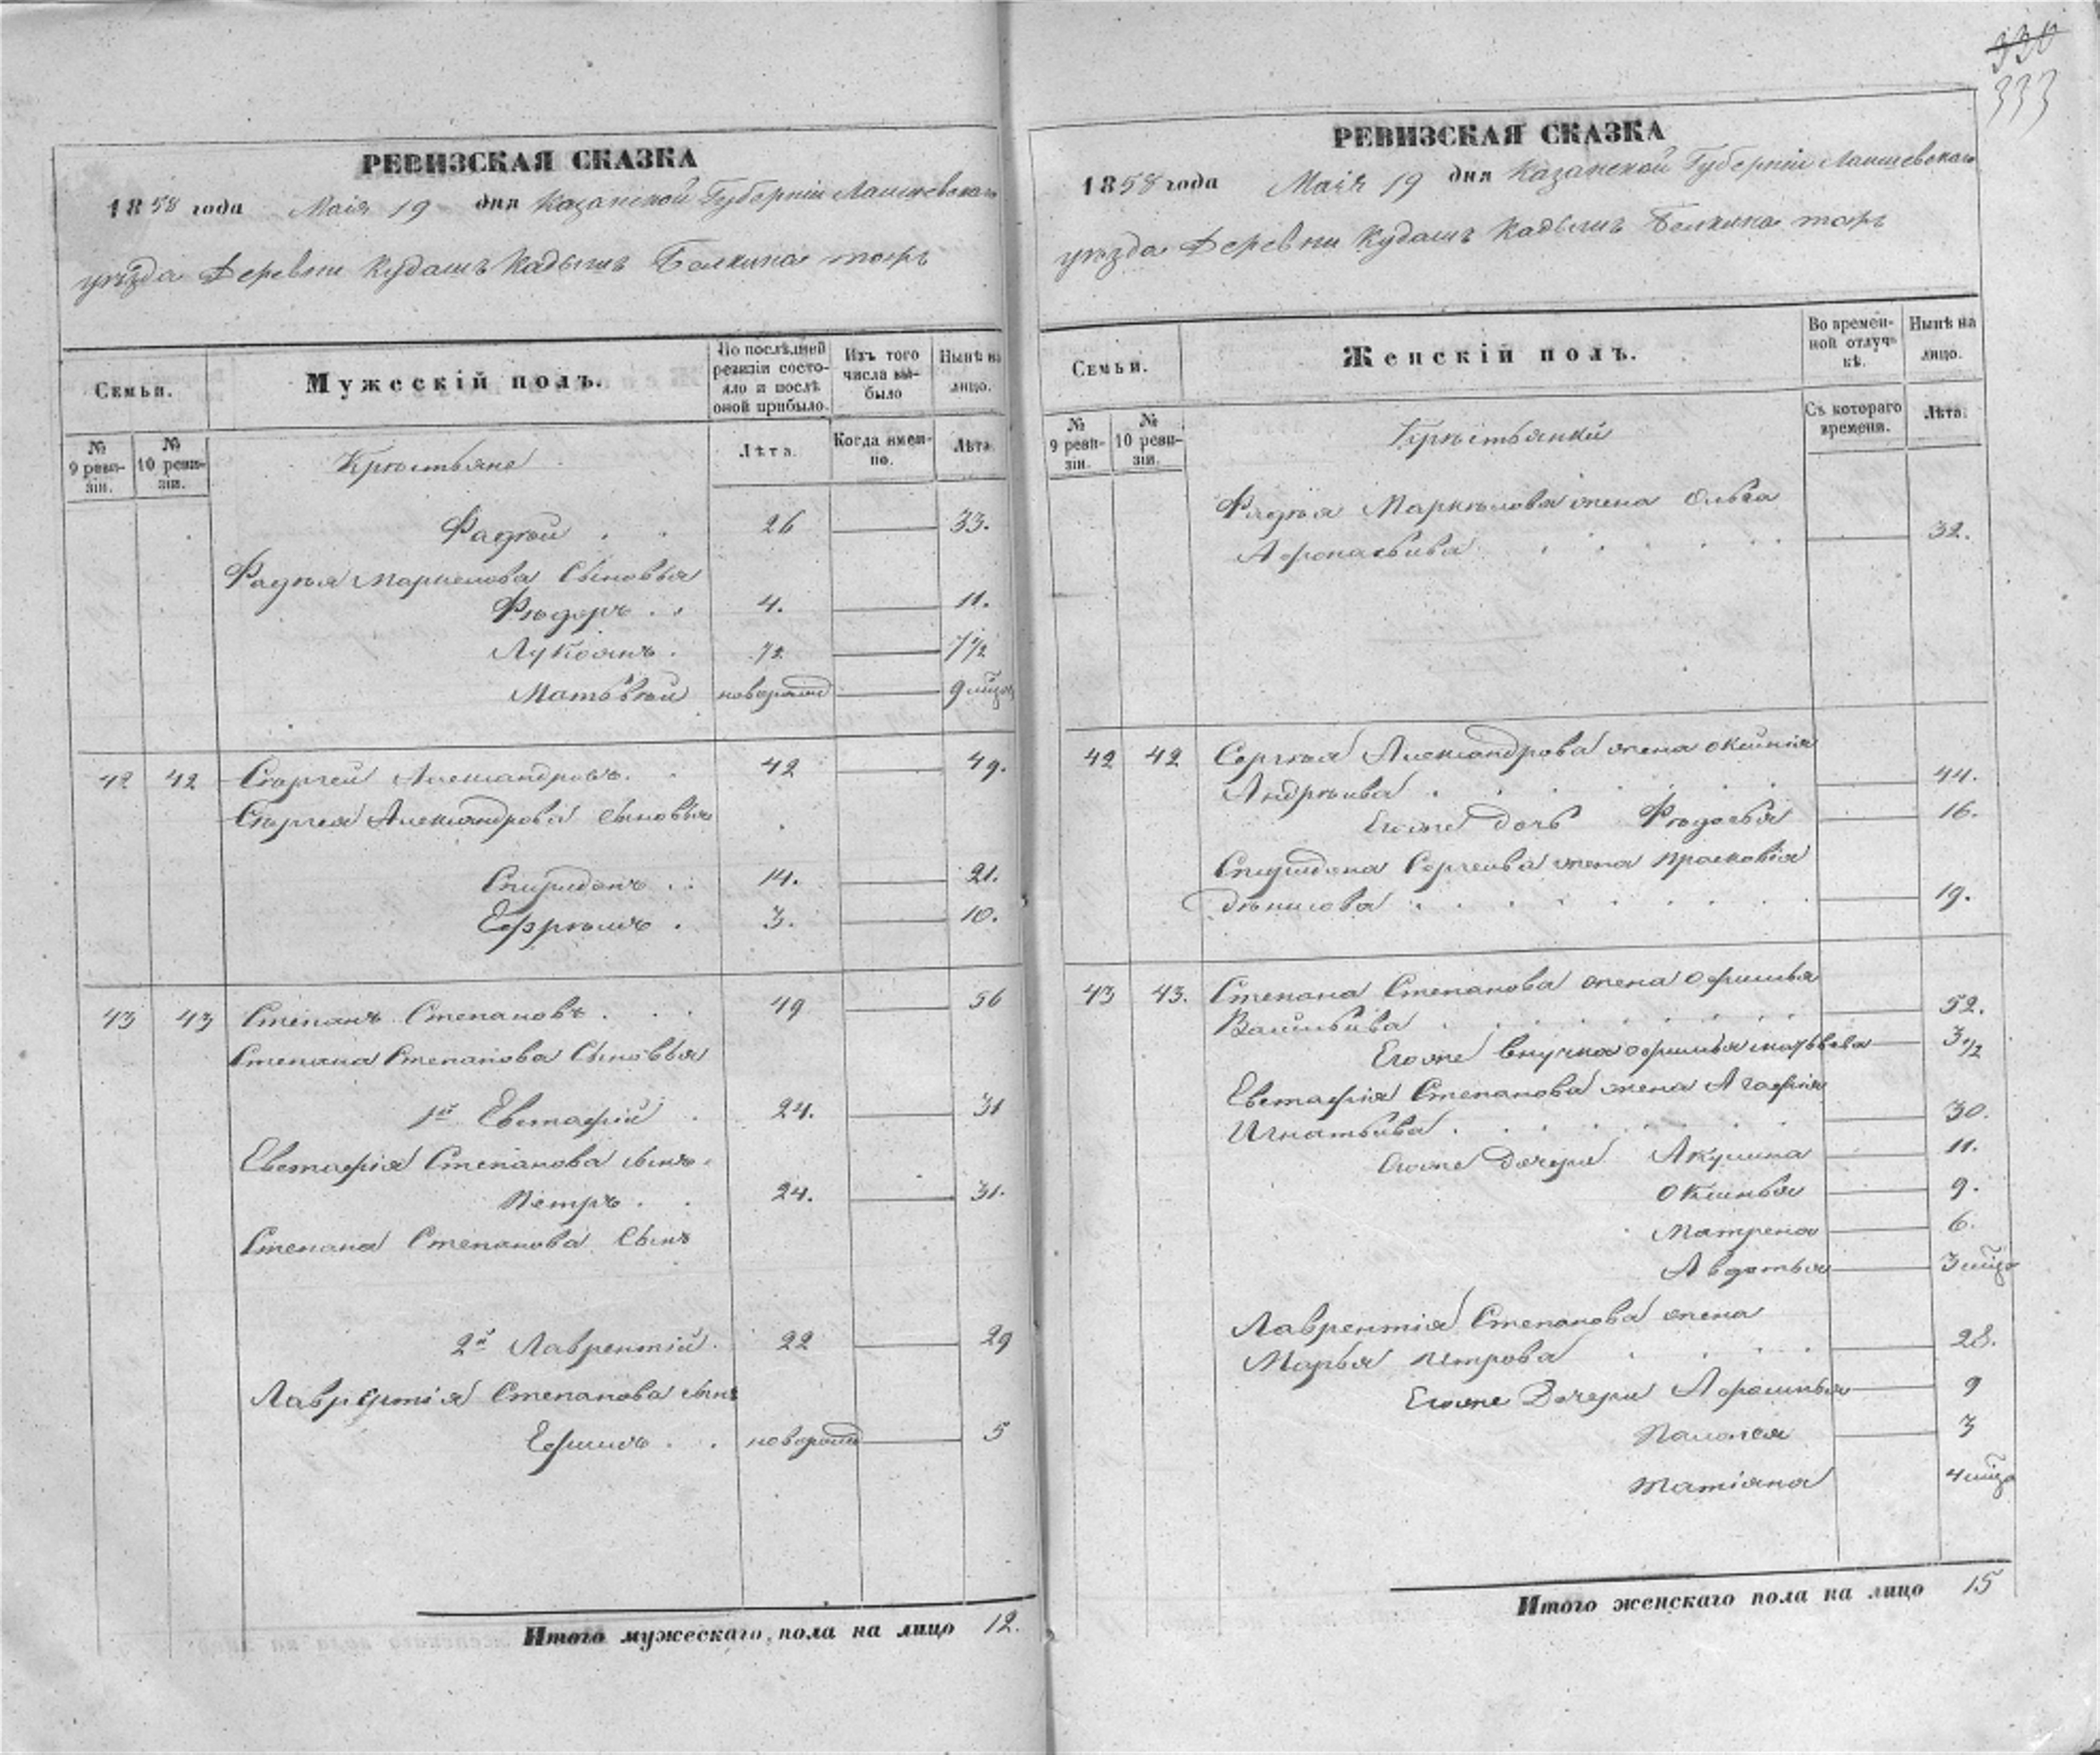 330
333
РЕВИЗСКАЯ СКАЗКА
1858 года Маія 19 дня Казанской Губерніи Лаишевскаго
уѣзда Деревни Кудашъ Кадышъ Белкина тожъ
Семьи.
Мужескій полъ.
По послѣдней ревизіи состояло и послѣ оной прибыло.
Изъ того числа выбыло
Нынѣ на лицо.
№ 9 ревизіи.
№ 10 ревизіи.
Крѣстьяне
Лѣта.
Когда именно.
Лѣта
Фадѣй . . 26 33.
Фадѣя Маркелова Сыновья
Ѳѣдоръ . . 4. 11.
Лукоянъ . ½ 7½
Матьвѣй новорожд 9 мѣц
42 42 Сѣргей Александровъ. . 42 49.
Сѣргея Александрова сыновья
Спиридонъ . . 14. 21.
Ефрѣмъ . 3. 10.
43 43 Степанъ Степановъ . . . 49 56
Степана Степанова Сыновья
1й Евстафій . 24. 31
Евстафія Степанова сынъ.
Петръ . . 24. 31.
Степана Степанова Сынъ
2й Лаврентій . 22 29
Лаврентія Степанова сынъ
Ефимъ . . новорожд 5
Итого мужескаго пола на лицо 12.
РЕВИЗСКАЯ СКАЗКА
1858 года Маія 19 дня Казанской Губерніи Лаишевскаго
уѣзда Деревни Кудашъ Кадышъ Белкина тожъ
Семьи.
Женскій полъ.
Во временной отлучкѣ.
Нынѣ на лицо.
№ 9 ревизіи.
№ 10 ревизіи.
Крѣстьянки
Съ котораго времени.
Лѣта.
Фадѣя Маркѣлова жена Ольга
Афонасьива . . . . . 32.
42 42 Сергѣя Александрова жена Оксинія
Андрѣива . . . . . 44.
Егоже дочь Ѳѣдосья 16.
Спиридона Сергеива жена Прасковія
Дѣнисова . . . . . 19.
43 43. Степана Степанова жена Офимья
Васильива . . . . . 52.
Егоже внучка Офимья Матвѣева 3½
Евстафія Степанова жена Агафия
Игнатьива . . . . . 30.
Егоже дочери Акулина 11.
Оксинья 9.
Матрена 6.
Авдотья 3 мѣц
Лаврентія Степанова жена
Марья Петрова . . . 28.
Егоже Дочери Афимья 9
Палагея 3
Татіяна 4 мѣц
Итого женскаго пола на лицо 15